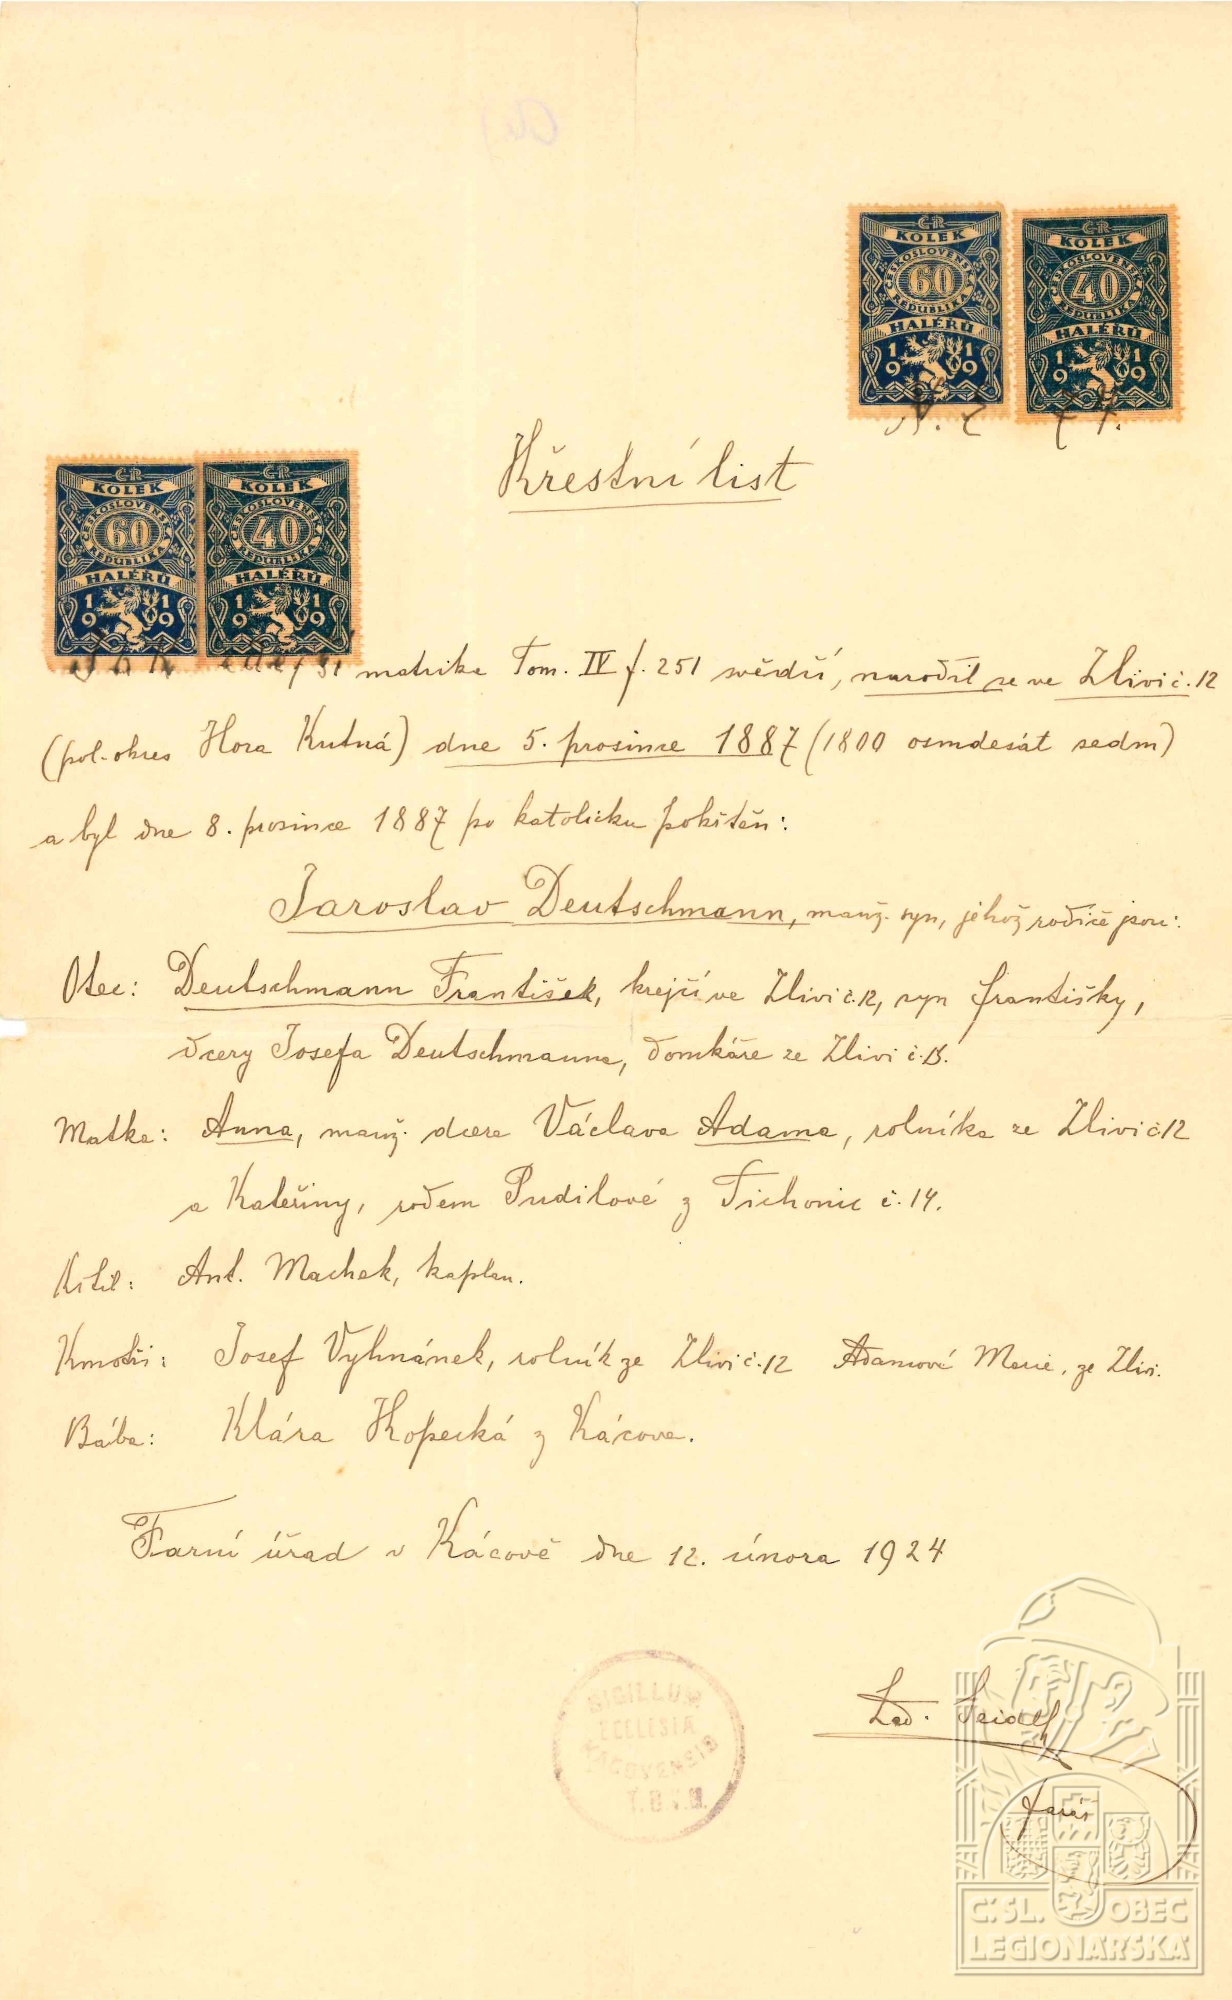 ČR
KOLEK
ČESKOSLOVENSKÁ
60
REPUBLIKA
HALÉŘŮ
1919
ČR
KOLEK
ČESKOSLOVENSKÁ
40
REPUBLIKA
HALÉŘŮ
1919
Křestní list
ČR
KOLEK
ČESKOSLOVENSKÁ
60
REPUBLIKA
HALÉŘŮ
1919
ČR
KOLEK
ČESKOSLOVENSKÁ
40
REPUBLIKA
HALÉŘŮ
1919
Jak zdejší matrika Tom. IV f. 251 svědčí, narodil se ve Zlivi č. 12
(pol. okres Hora Kutná) dne 5. prosince 1887 (1800 osmdesát sedm)
a byl dne 8. prosince 1887 po katolicku pokřtěn:
Jaroslav Deutschmann, manž. syn, jehož rodiče jsou:
Otec: Deutschmann František, krejčí ve Zlivi č. 12, syn Františky,
dcery Josefa Deutschmanna, domkáře ze Zlivi č.
Matka: Anna, manž. dcera Václava Adama, rolníka ze Zlivi č. 12
a Kateřiny, rodem Pudilové z Tichonic č. 14.
Křtil: Ant. Machek, kaplan.
Kmotři: Josef Vyhnánek, rolník ze Zlivi č. 12 Adamová Marie, ze Zlivi.
Bába: Klára Kopecká z Kácova.
Farní úřad v Kácově dne 12. února 1924
SIGILLUM
ECCLESIÆ
KACOVENSIS
Lad. Seidl
farář
Č.SL. OBEC
LEGIONÁŘSKÁ